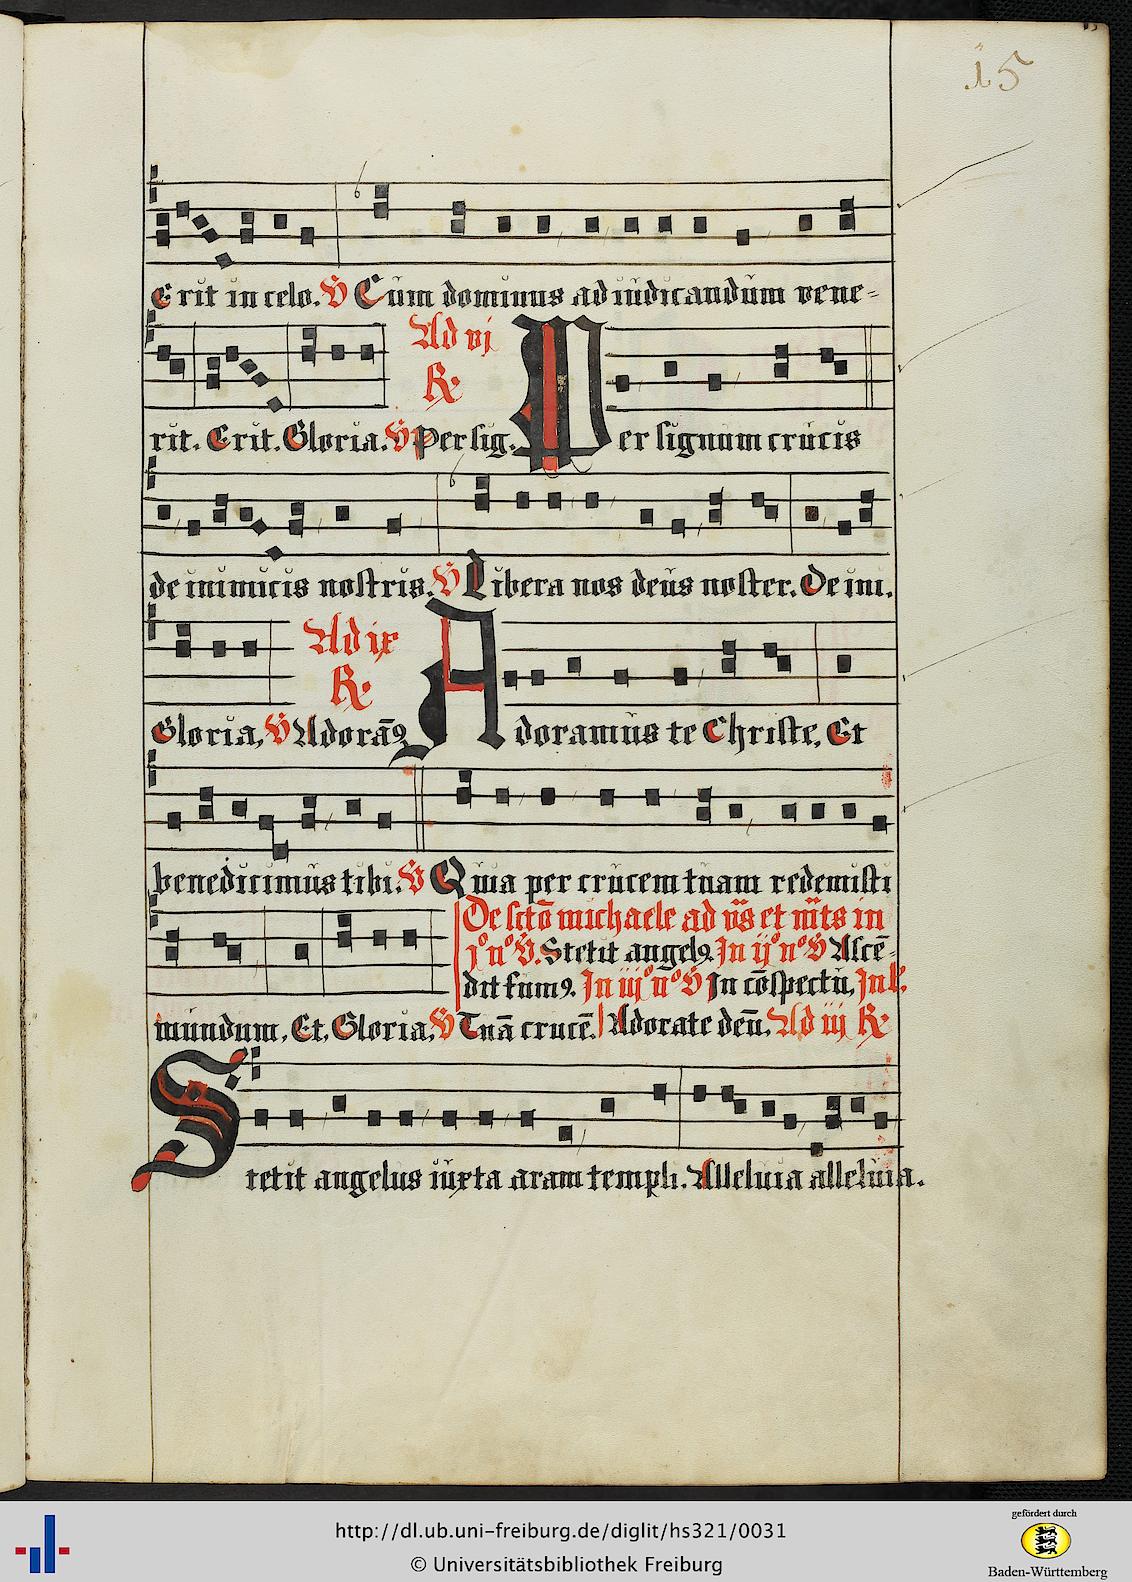 15
Erit in celo. V Cum dominus ad iudicandum vene-
Ad vj
R
rit. Erit. Gloria. V Per sig. Per signum crucis
de inimicis nostris. V Libera nos deus noster. De ini.
Ad ix
R
Gloria, V Adorāꝰ Adoramus te Christe, Et
benedicimus tibi. V Quia per crucem tuam redemisti
De sctō michaele ad v̄s et m̄ts in
jº nº V. Stetit angelꝰ. In ijº nº V Ascē-
dit fumꝰ. In iijº nº V In cōspectu, In l.
mundum, Et, Gloria, V Tuā crucē. Adorate deū. Ad iij R
Stetit angelus iuxta aram templi. Alleluia alleluia.
http://dl.ub.uni-freiburg.de/diglit/hs321/0031
© Universitätsbibliothek Freiburg
gefördert durch
Baden-Württemberg